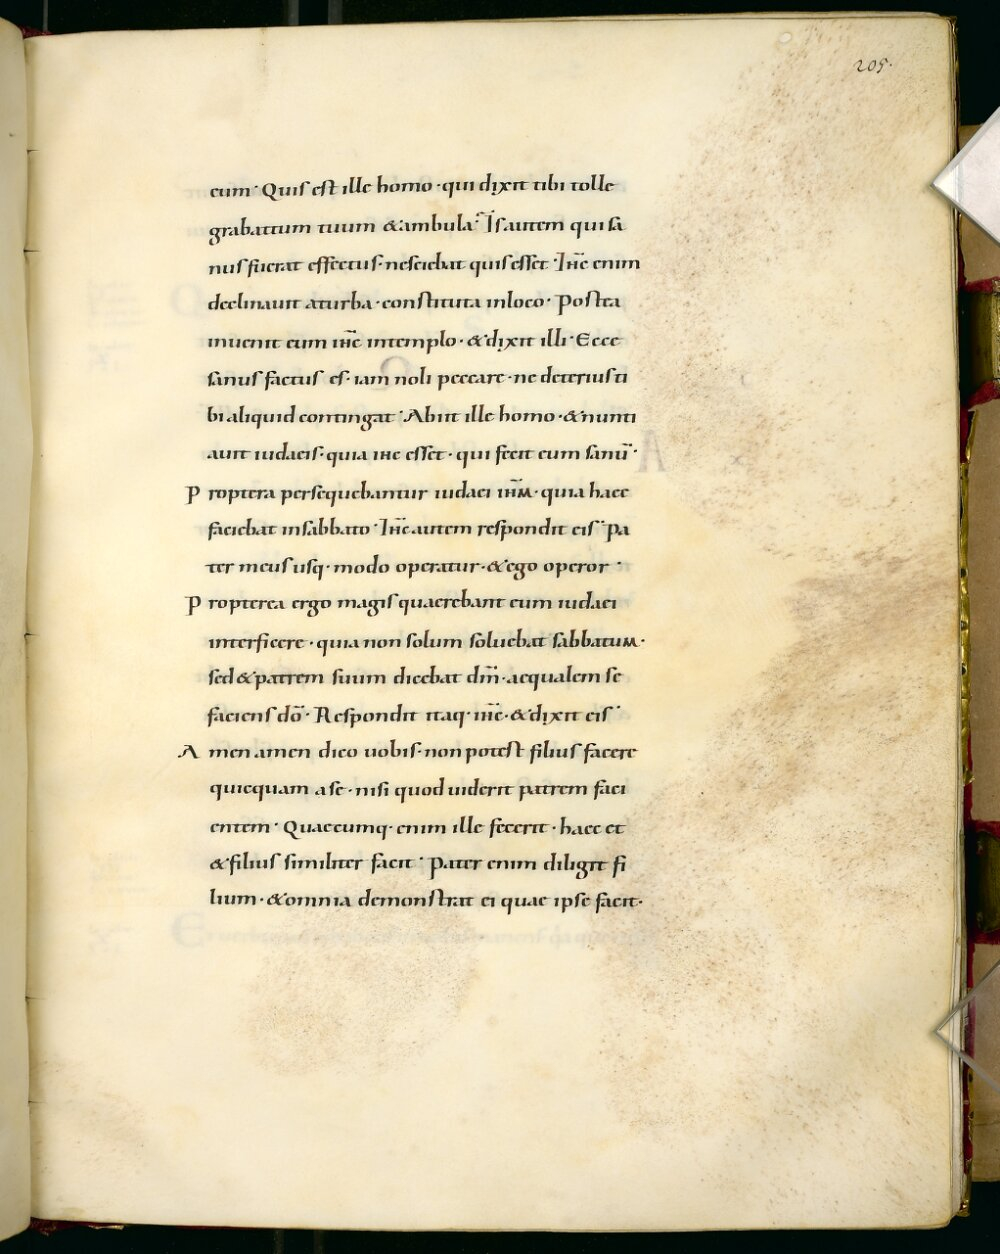 205.
eum· Quis est ille homo·qui dixit tibi tolle
grabattum tuum &ambula? Is autem qui sa
nus fuerat effectus·nesciebat quis esset· Ih̅c enim
declinauit aturba·constituta inloco· Postea
inuenit eum ih̅c intemplo·&dixit illi· Ecce
sanus factus es·iam noli peccare·ne deterius ti
bi aliquid contingat· Abiit ille homo·&nunti
auit iudaeis·quia ih̅c esset·qui fecit eum sanu̅·
P roptera persequebantur iudaei ih̅m·quia haec
faciebat insabbato· Ih̅c autem respondit eis· Pa
ter meus usq·modo operatur·&ego operor·
P ropterea ergo magis quaerebant eum iudaei
interficere·quia non solum soluebat sabbatum·
sed &patrem suum dicebat dm̅·aequalem se
faciens do̅· Respondit itaq·ih̅c·&dixit eis·
A men amen dico uobis·non potest filius facere
quicquam ase·nisi quod uiderit patrem faci
entem· Quaecumq·enim ille fecerit·haec et
&filius similiter facit· Pater enim diligit fi
lium·&omnia demonstrat ei quae ipse facit·